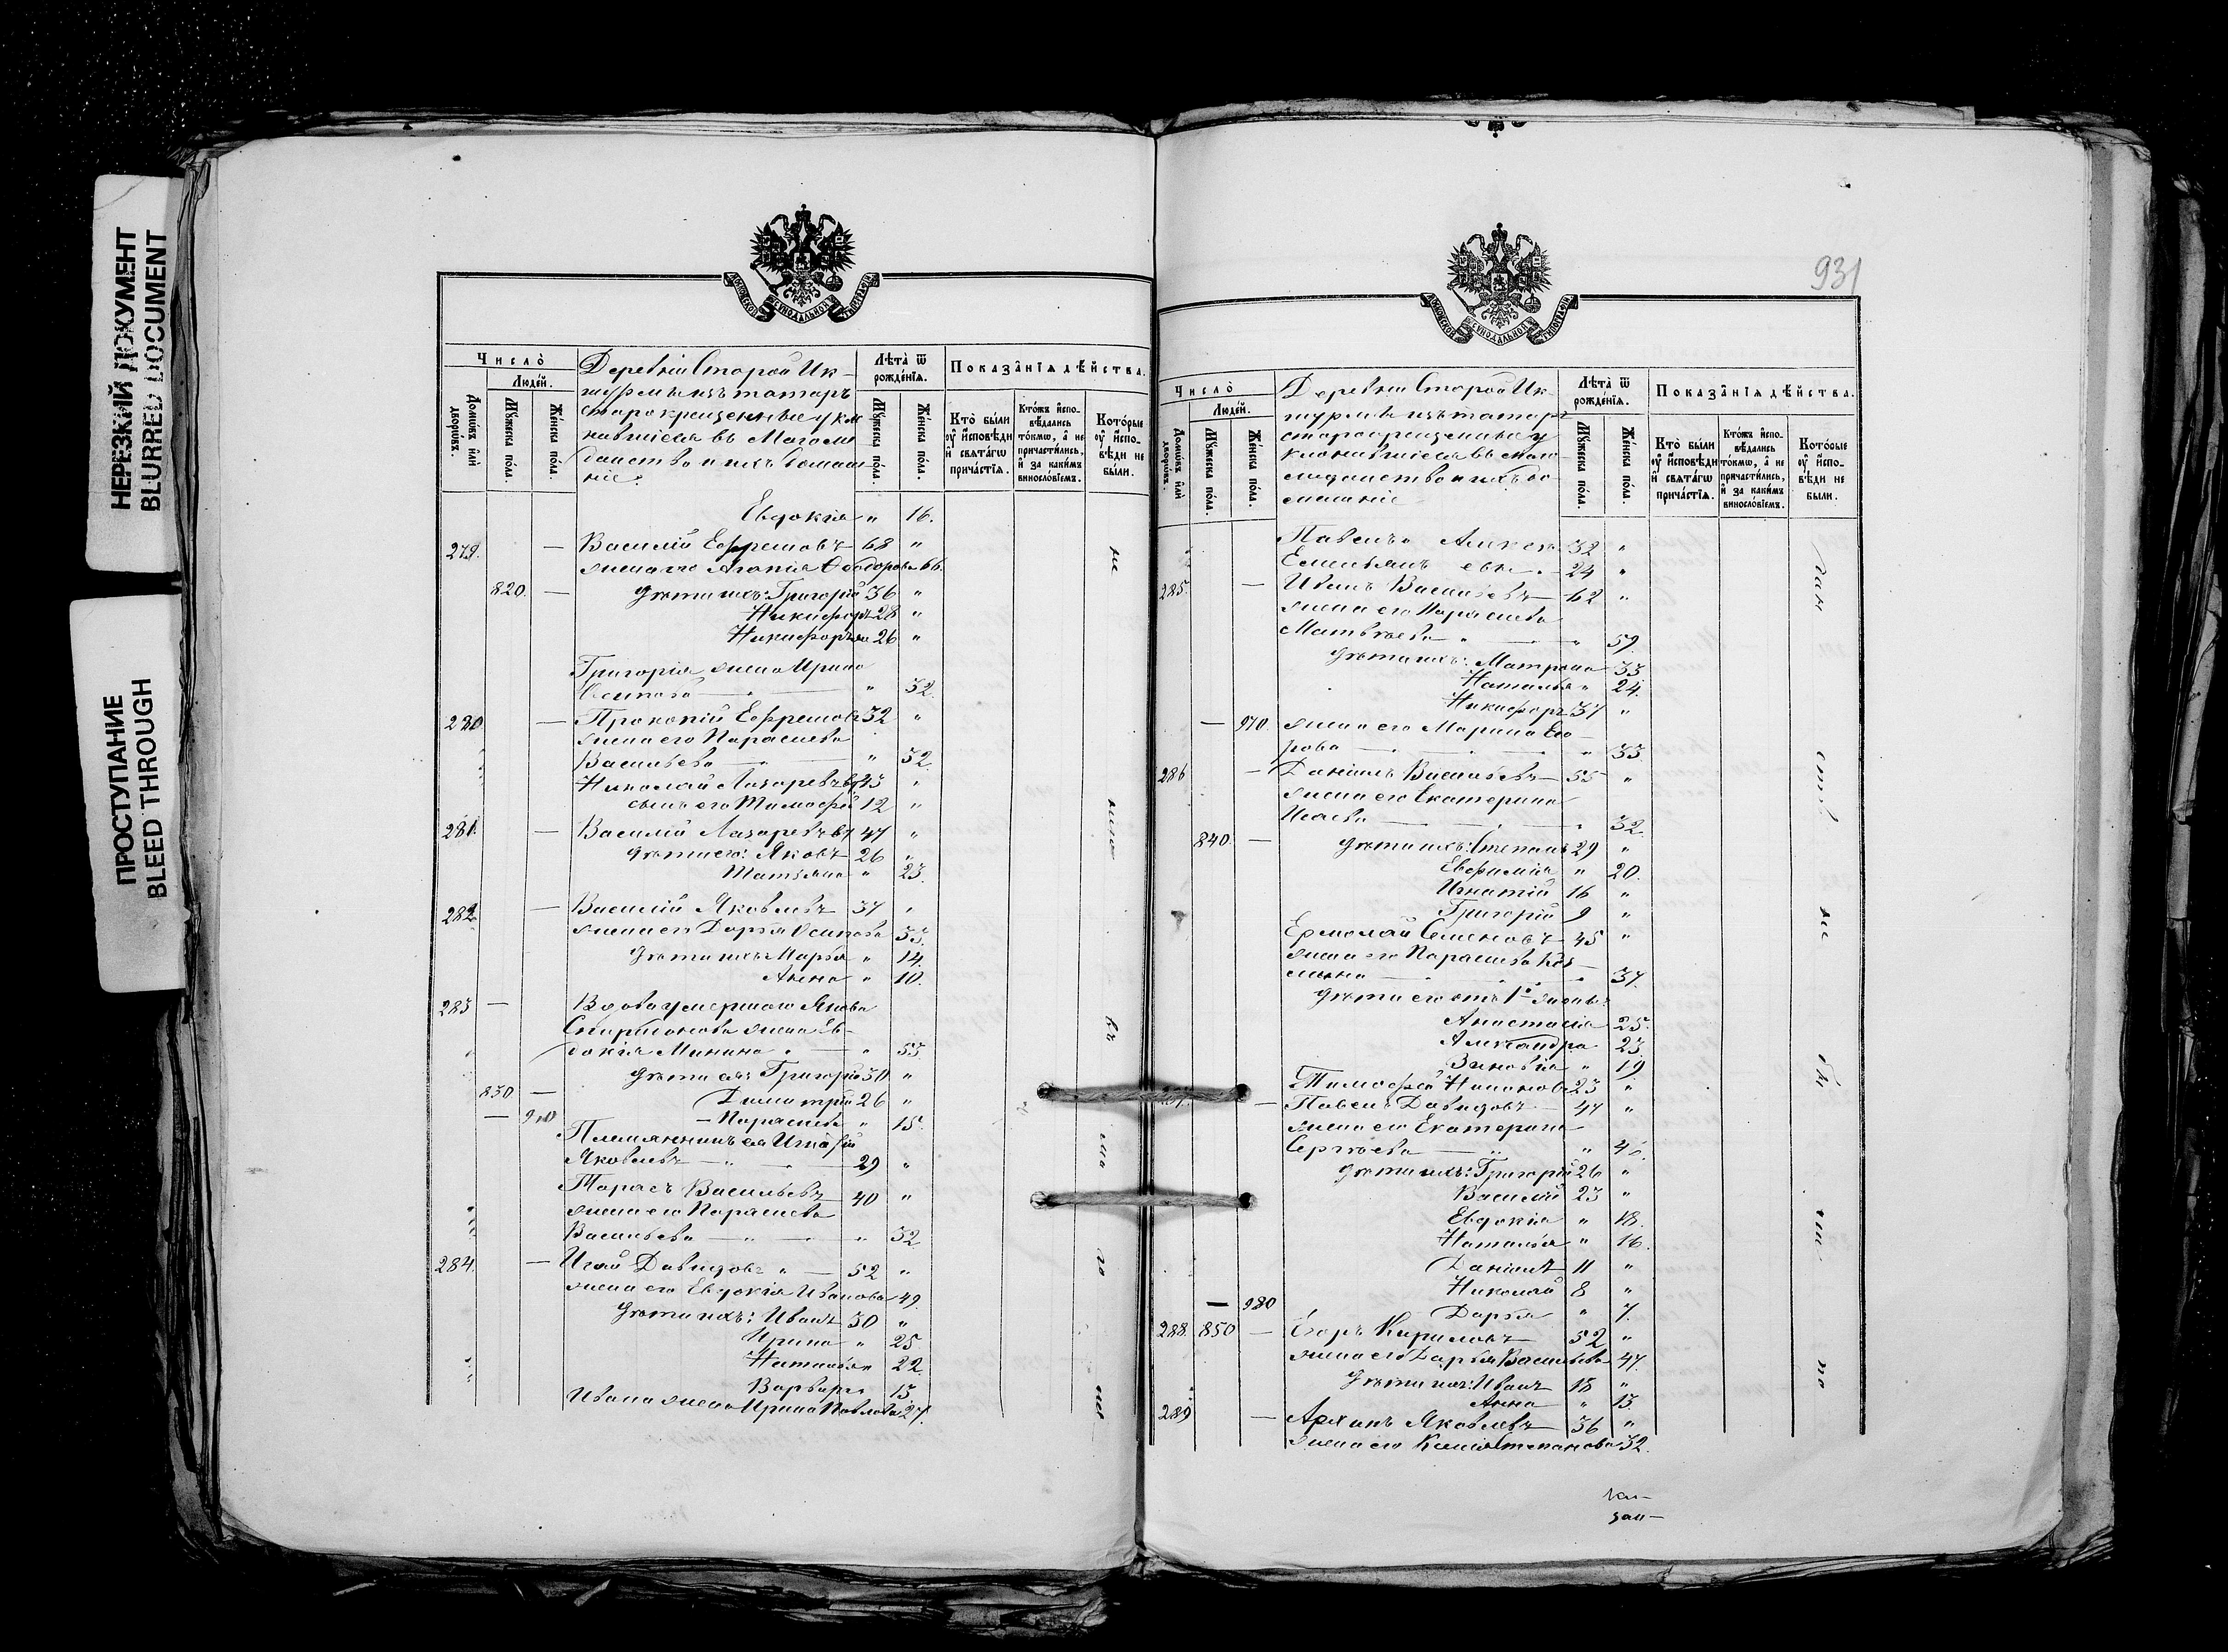 НЕРЕЗКИЙ ДОКУМЕНТ
BLURRED DOCUMENT
ПРОСТУПАНИЕ
BLEED THROUGH
МОСКОВСКОЙ СѴНОДАЛЬНОЙ ТИПОГРАФІИ
Число̀
Людéй.
Домѡ́въ и҆лѝ дворѡ́въ.
Мꙋ́жеска по́ла.
Же́нска по́ла.
Деревни Старой Ик-
шурмы изъ татаръ
старокрещенные укло
нившіеся въ Магоме
данство и ихъ домаш
ніе.
Лѣта̀ ѿ рожде́нїѧ.
Мꙋ́жеска по́ла.
Же́нска по́ла.
Показа̂нїѧ дѣ́йства.
Кто̀ бы́ли ᲂу҆ и҆сповѣ́ди и҆ свѧта́гѡ прича́стїѧ.
Кто́жъ и҆спо- вѣ́дались то́кмѡ, а҆ не причасти́лись, и҆ за каки́мъ винослові́емъ.
Кото́рые ᲂу҆ и҆спо- вѣ́ди не бы́ли.
Евдокія " 16.
279. — Василій Ефремовъ 68 "
жена его Агапія Ѳеодорова 66.
820. — дѣти ихъ: Григорій 36 "
Никифоръ 28 "
Никифоръ 26 "
Григорія жена Ирина
Осипова — " 32.
280 — Прокопій Ефремовъ 32 "
жена его Параскева
Васильева — " 32.
Николай Лазаревъ 43 "
сынъ его Тимофей 12 "
281. — Василій Лазаревъ 47 "
дѣти его: Яковъ 26 "
Татьяна " 23.
282. — Василій Яковлевъ 37 "
жена его Дарья Осипова 33.
дѣти ихъ Марья " 14.
Анна " 10.
283 — Вдова умершаго Якова
Спиридонова жена Ев-
докія Минина " 53
дѣти ея: Григорій 30 "
830 — Димитрій 26 "
— Параскева " 15.
Племянникъ ея Игнатій
Яковлевъ — " — 29 "
Тарасъ Васильевъ 40 "
жена его Параскева
Васильева — " — " 32
284. — Давидовъ " — 52 "
жена его Евдокія Иванова 49.
дѣти ихъ: Иванъ 30 "
Ирина " 25
Наталья " 22.
Варвара 13
Ивана жена Ирина Павлова 27.
931
МОСКОВСКОЙ СѴНОДАЛЬНОЙ ТИПОГРАФІИ
Число̀
Людéй.
Домѡ́въ и҆лѝ дворѡ́въ.
Мꙋ́жеска по́ла.
Же́нска по́ла.
Деревни Старой Ик
шурмы изъ татаръ
старокрещенные у
клонившіеся въ Маго
меданство и ихъ до
машніе
Лѣта̀ ѿ рожде́нїѧ.
Мꙋ́жеска по́ла.
Же́нска по́ла.
Показа̂нїѧ дѣ́йства.
Кто̀ бы́ли ᲂу҆ и҆сповѣ́ди и҆ свѧта́гѡ прича́стїѧ.
Кто́жъ и҆спо- вѣ́дались то́кмѡ, а҆ не причасти́лись, и҆ за каки́мъ винослові́емъ.
Кото́рые ᲂу҆ и҆спо- вѣ́ди не бы́ли.
Павелъ Алексѣ 32 "
Емельянъ евы — 24 "
285. — Иванъ Васильевъ — 62 "
жена его Параскева
Матвѣева " — " 59.
дѣти ихъ: Матрона 33
Наталья " 24.
Никифоръ 37 "
— 970. жена его Марина Его
рова — " 33.
286 — Даніилъ Васильевъ — 55 "
жена его Екатерина
Исаева — " 32.
840. — дѣти ихъ: Степанъ 29 "
Евфимія " 20.
Игнатій 16 "
Григорій 9 "
Ермолай Семеновъ 45 "
жена его Параскева Коз-
мина — " 37.
дѣти его отъ 1й жены:
Анастасія 25.
Александра 23.
Зиновія " 19
Тимофей Никоновъ 23 "
— Павелъ Давидовъ — 47 "
жена его Екатерина
Сергѣева — "
дѣти ихъ: Григорій 26 "
Василій 23 "
Евдокія " 18.
Наталья " 16.
Даніилъ 11 "
Николай 8 "
— 980 Дарья " 7.
288. 850 — Егоръ Кириловъ — 52 "
жена его Дарья Васильева 47.
дѣти ихъ: Иванъ 18 "
Анна " 13.
289 — Архипъ Яковлевъ 36 "
жена его Ксенія Степанова 32.